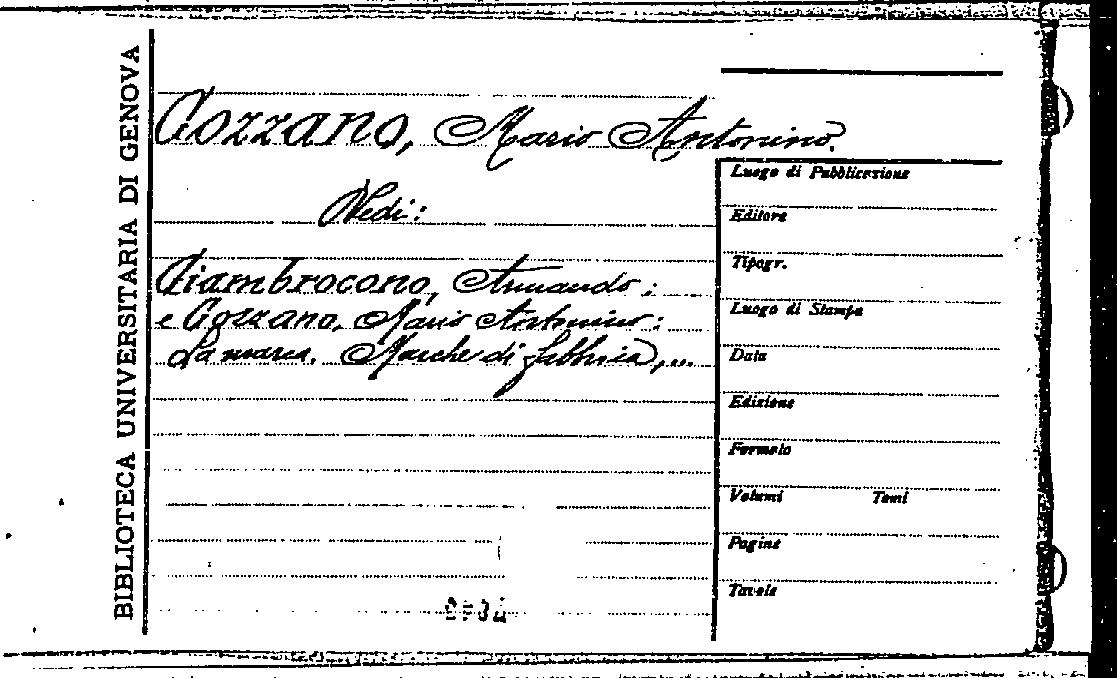 BIBLIOTECA UNIVERSITARIA DI GENOVA
Gozzano, Mario Antonino.
Vedi:
Giambrocono, Armando ;
e Gozzano, Mario Antonino :
La marca. Marche di fabbrica, ...
Luogo di Pubblicazione
Editore
Tipogr.
Luogo di Stampa
Data
Edizione
Formato
Volumi Tomi
Pagine
Tavole